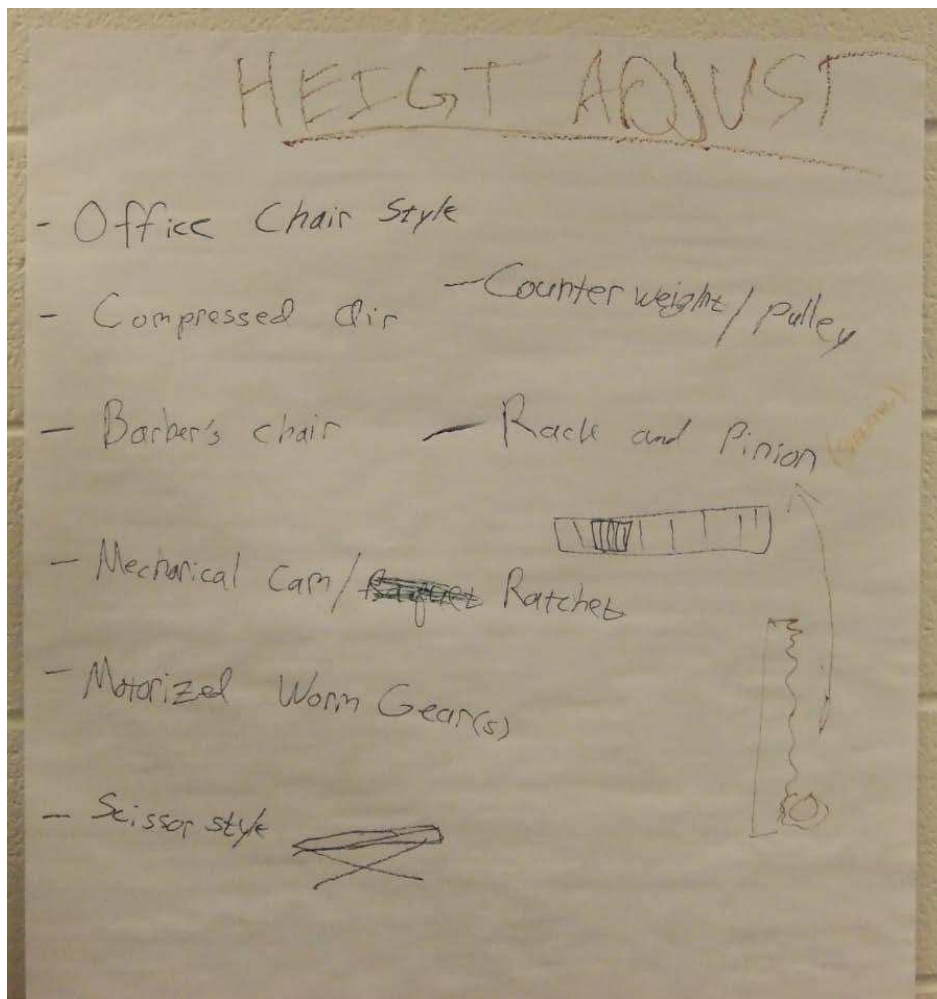 HEIGT ADJUST
- Office Chair Style
- Compressed Air
- Counter weight / Pulley
- Barber's chair
- Rack and Pinion
- Mechanical Cam / Ratchet
- Motorized Worm Gear(s)
- Scissor style